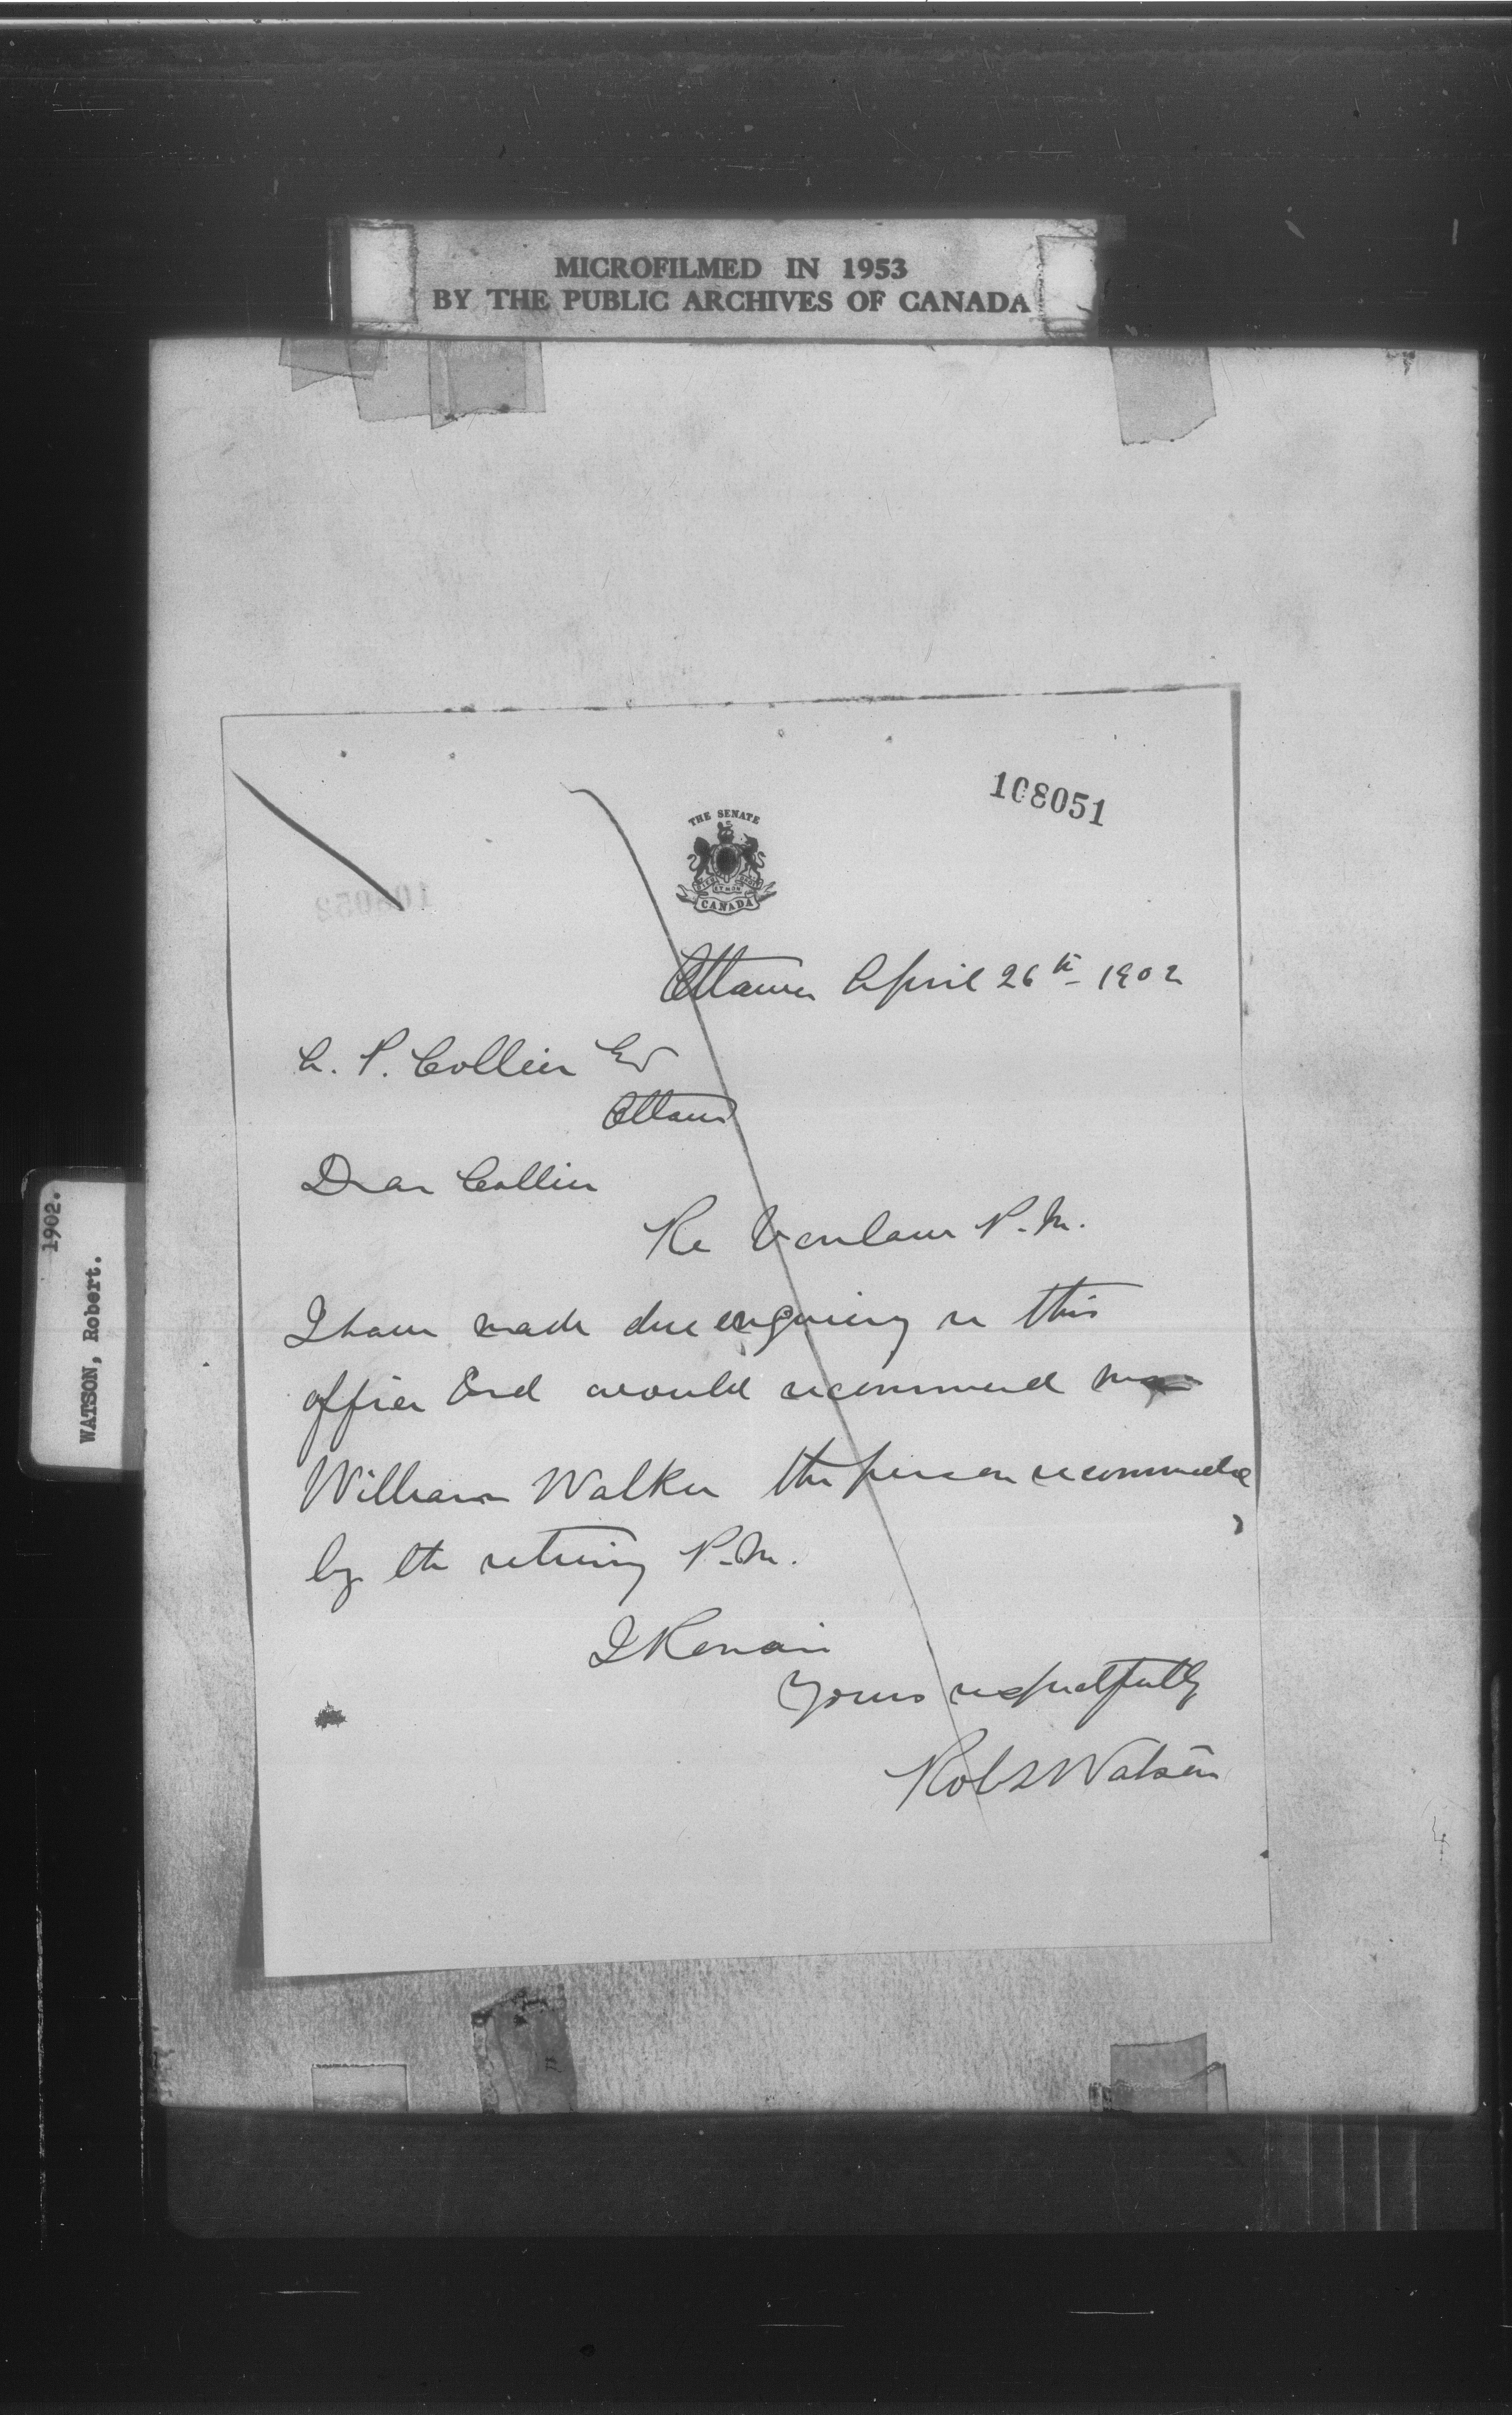 MICROFILMED IN 1953
BY THE PUBLIC ARCHIVES OF CANADA
1902.
WATSON, Robert.
108051
THE SENATE
CANADA
Ottawa April 26th 1902
A. P. Collier Esq
Ottawa
Dear Collier
Re P.M.
I have made due enquiry re this
office and would recommend
William Walker the person recommended
by the retiring P.M.
I Remain
Yours respectfully
Robt Watson